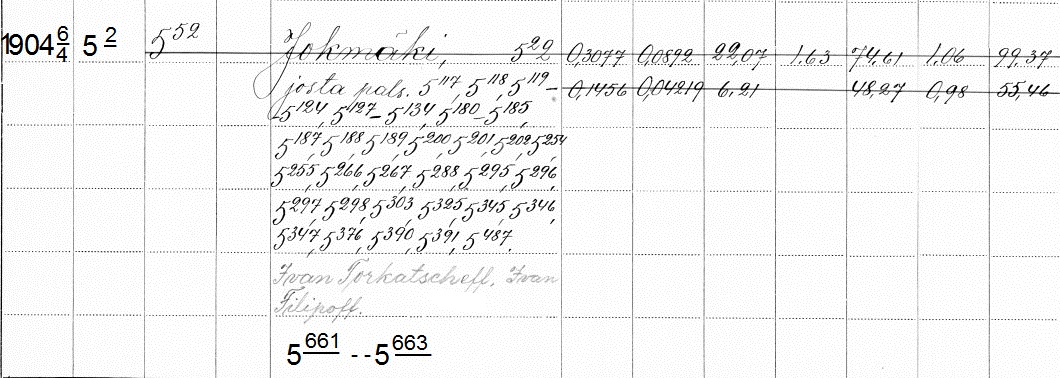 1904 6/4 5² 5⁵² Jokmäki, 5²⁹ 0,3077 0,0892 22,07 1,63 74,61 1,06 99,37
josta pals. 5¹¹⁷, 5¹¹⁸, 5¹¹⁹– 0,1456 0,04219 6,21 48,27 0,98 55,46
–5¹²⁴, 5¹²⁷–5¹³⁴, 5¹⁸⁰–5¹⁸⁵,
5¹⁸⁷, 5¹⁸⁸, 5¹⁸⁹, 5²⁰⁰, 5²⁰¹, 5²⁰², 5²⁵⁴
5²⁵⁵, 5²⁶⁶, 5²⁶⁷, 5²⁸⁸, 5²⁹⁵, 5²⁹⁶,
5²⁹⁷, 5²⁹⁸, 5³⁰³, 5³²⁵, 5³⁴⁵, 5³⁴⁶,
5³⁴⁷, 5³⁷⁶, 5³⁹⁰, 5³⁹¹, 5⁴⁸⁷.
Ivan Torkatscheff, Ivan
Filipoff.
5⁶⁶¹ --5⁶⁶³